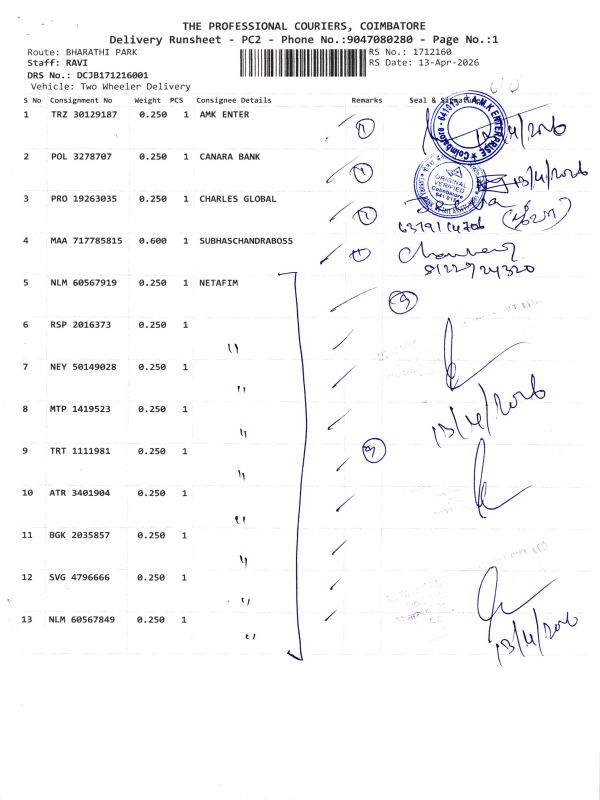 THE PROFESSIONAL COURIERS, COIMBATORE
Delivery Runsheet - PC2 - Phone No.:9047080280 - Page No.:1
Route: BHARATHI PARK
RS No.: 1712160
Staff: RAVI
RS Date: 13-Apr-2026
DRS No.: DCJB171216001
Vehicle: Two Wheeler Delivery
S No Consignment No Weight PCS Consignee Details Remarks Seal & Signature
1 TRZ 30129187 0.250 1 AMK ENTER
A.M.K ENTERPRISE ★ Coimbatore - 641015 ★
13/4/2026
2 POL 3278707 0.250 1 CANARA BANK
ORIGINAL VERIFIED
Coimbatore
13/4/2026
3 PRO 19263035 0.250 1 CHARLES GLOBAL
4 MAA 717785815 0.600 1 SUBHASCHANDRABOSS
5 NLM 60567919 0.250 1 NETAFIM
6 RSP 2016373 0.250 1 "
7 NEY 50149028 0.250 1 "
8 MTP 1419523 0.250 1 "
13/4/2026
9 TRT 1111981 0.250 1 "
10 ATR 3401904 0.250 1 "
11 BGK 2035857 0.250 1 "
12 SVG 4796666 0.250 1 "
13 NLM 60567849 0.250 1 "
13/4/2026